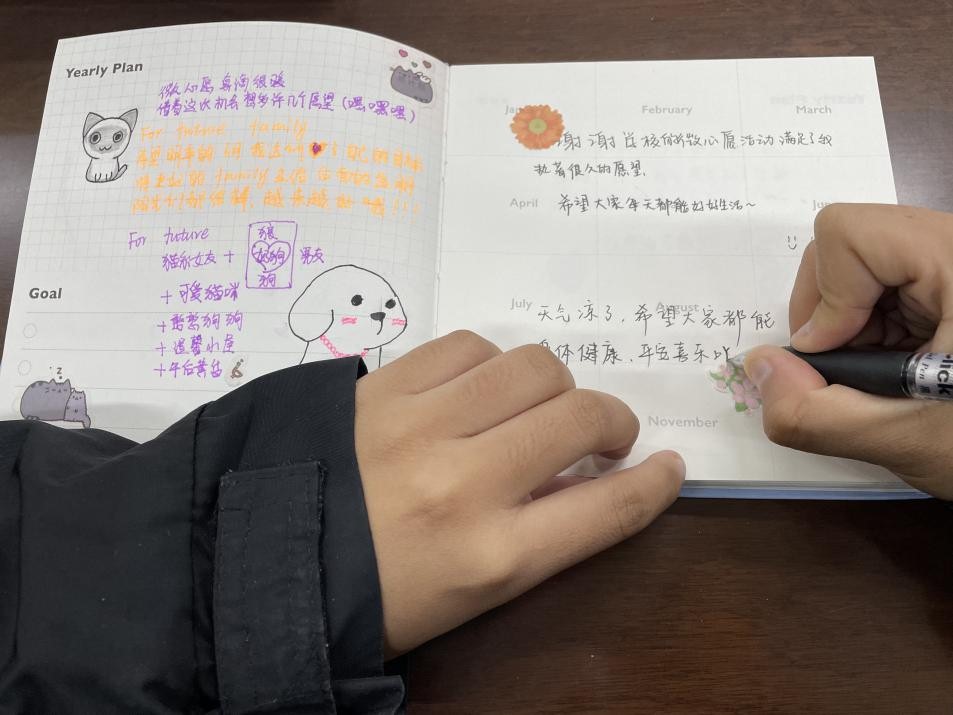 Yearly Plan
微心愿真滴很暖
借着这次机会想多许几个愿望（嘿嘿嘿）
For future family
For future
猫系女友 +
狼
奶狗
狗
男友
+ 可爱猫咪
+ 憨憨狗狗
+ 温馨小屋
+ 午后黄昏
Goal
z
January
February
March
谢谢学校的微心愿活动 满足了我
执着很久的愿望.
April
希望大家每天都能好好生活~
July
August
天气凉了，希望大家都能
身体健康、平安喜乐吖
November
click
Pen